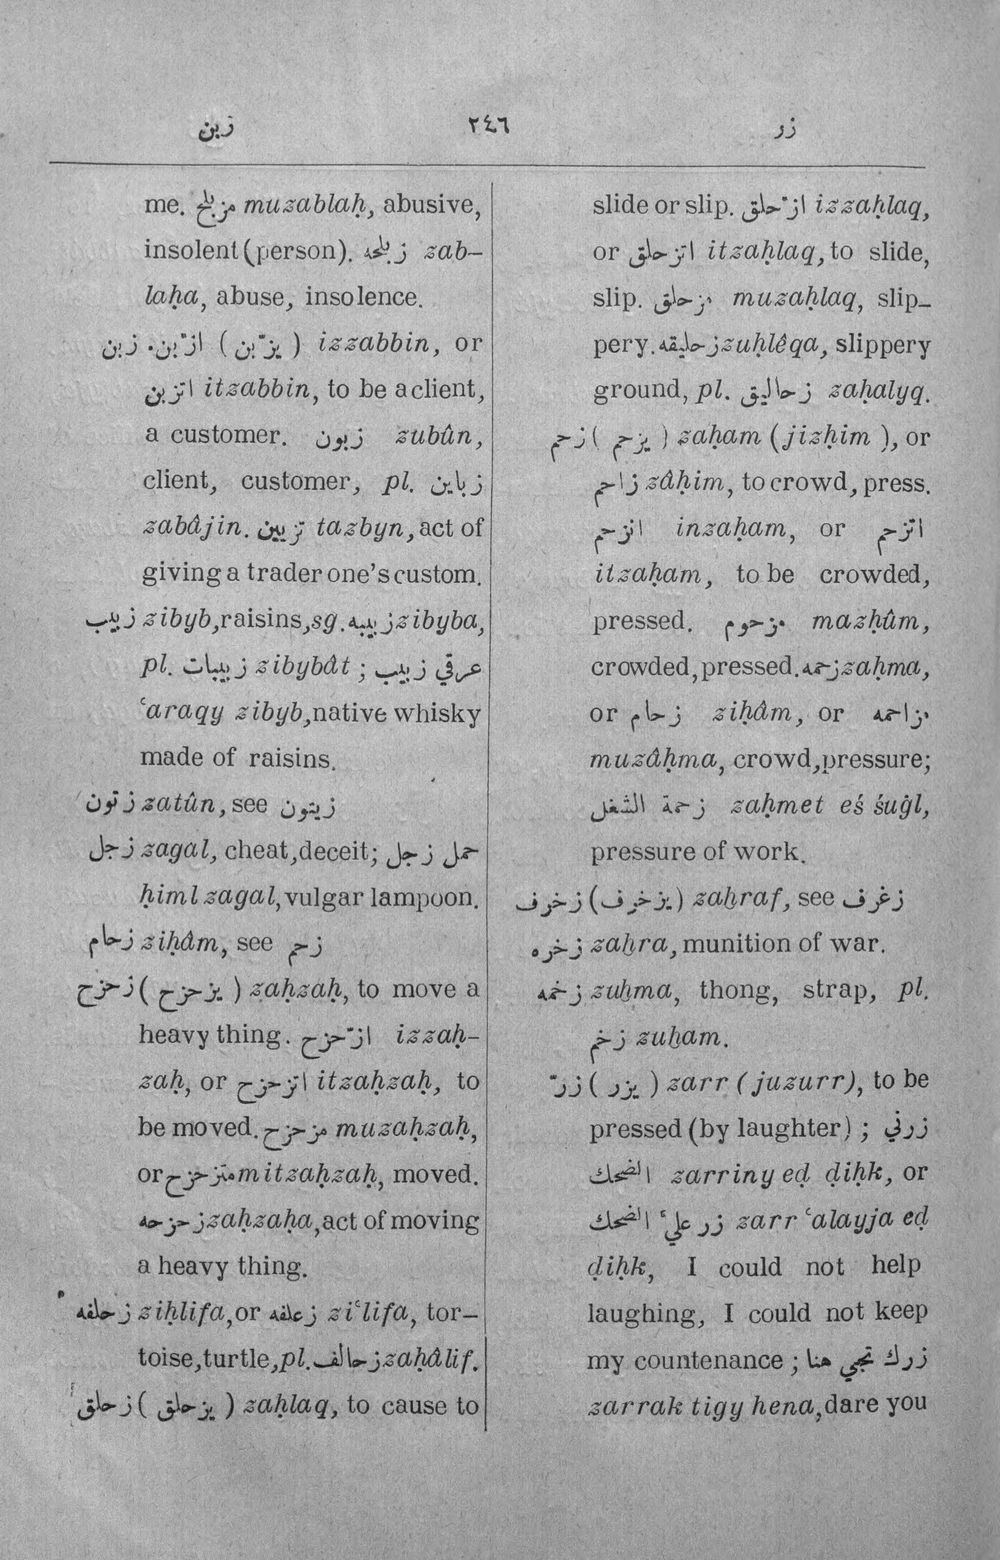 زبن ٢٤٦ زر
me. مزبلح muzablaḥ, abusive,
insolent (person). زبلحه zab-
laḥa, abuse, insolence.
زبن ( يزّبن ) ازّبن izzabbin, or
اتزبن itzabbin, to be a client,
a customer. زبون zubûn,
client, customer, pl. زباين
zabâjin. تزيين tazbyn, act of
giving a trader one's custom.
زبيب zibyb, raisins, sg. زبيبه zibyba,
pl. زبيبات zibybât ; عرقي زبيب
ʿaraqy zibyb, native whisky
made of raisins.
زتون zatûn, see زيتون
زجل zagal, cheat, deceit; حمل زجل
ḥiml zagal, vulgar lampoon.
زحام ziḥâm, see زحم
زحزح ( يزحزح ) zaḥzaḥ, to move a
heavy thing. ازّحزح izzaḥ-
zaḥ, or اتزحزح itzaḥzaḥ, to
be moved. مزحزح muzaḥzaḥ,
or متزحزح mitzaḥzaḥ, moved.
زحزحه zaḥzaḥa, act of moving
a heavy thing.
زحلفه ziḥlifa, or زعلفه ziʿlifa, tor-
toise, turtle, pl. زحالف zaḥâlif.
زحلق ( يزحلق ) zaḥlaq, to cause to
slide or slip. ازّحلق izzaḥlaq,
or اتزحلق itzaḥlaq, to slide,
slip. مزحلق muzaḥlaq, slip-
pery. زحليقه zuḥlêqa, slippery
ground, pl. زحاليق zaḥalyq.
زحم ( يزحم ) zaḥam (jizḥim ), or
زاحم zâḥim, to crowd, press.
انزحم inzaḥam, or اتزحم
itzaḥam, to be crowded,
pressed. مزحوم mazḥûm,
crowded, pressed. زحمه zaḥma,
or زحام ziḥâm, or مزاحمه
muzâḥma, crowd, pressure;
زحمة الشغل zaḥmet eś śuġl,
pressure of work.
زخرف (يزخرف) zaḫraf, see زغرف
زخره zaḫra, munition of war.
زخمه zuḫma, thong, strap, pl.
زخم zuḫam.
زرّ ( يزر ) zarr (juzurr), to be
pressed (by laughter) ; زرني
الضحك zarriny eḍ ḍiḥk, or
زر عليّ الضحك zarr ʿalayja eḍ
ḍiḥk, I could not help
laughing, I could not keep
my countenance ; زرك تجي هنا
zarrak tigy hena, dare you